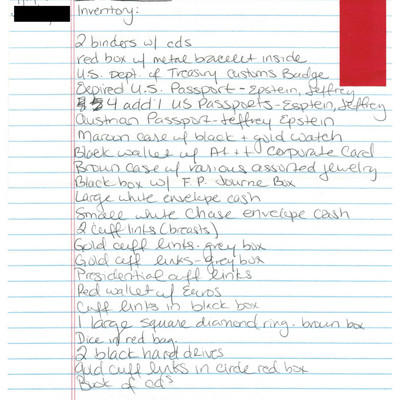 Inventory:
2 binders w/ cds
red box w/ metal bracelet inside
U.S. Dept. of Treasury Customs Badge
Expired U.S. Passport - Epstein, Jeffrey
4 add'l US Passports - Esptein, Jeffrey
Austrian Passport - Jeffrey Epstein
Maroon case w/ black + gold watch
Black wallet w/ A++ Corporate Card
Brown case w/ various assorted jewelry
Black box w/ F.P. Journe Box
Large white envelope cash
Small white Chase envelope cash
2 Cuff links (breasts)
Gold cuff links - grey box
Gold cuff links - grey box
Presidential cuff links
Red wallet w/ Euros
Cuff links in black box
1 large square diamond ring - brown box
Dice in red bag
2 black hard drives
Gold cuff links in circle red box
Book of cds